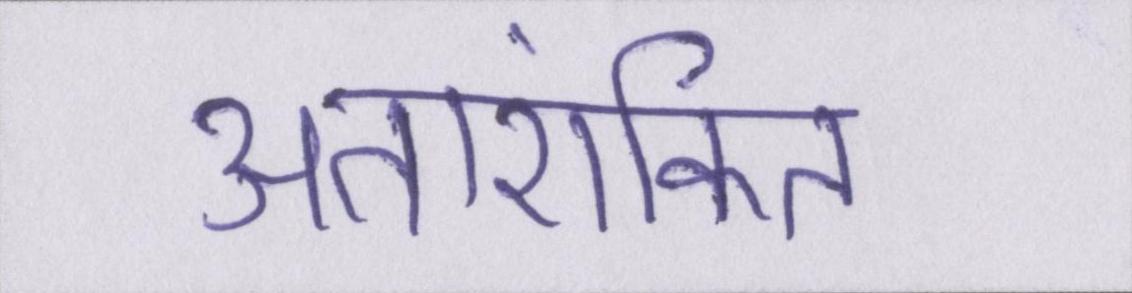 अतारांकित